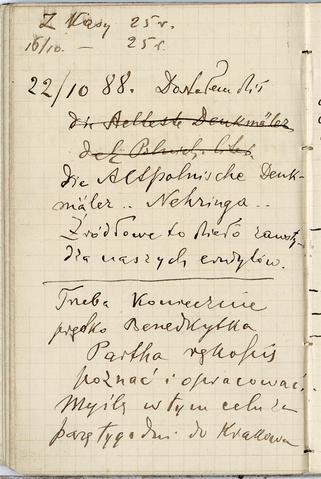 Z Kasy 25 r.
16/10. — 25 r.
22/10 88. Dostałem dziś
die Aelteste Denkmäler
der Polnisch. Liter.
die Altpolnische Denk-
mäler .. Nehringa ..
Źródłowe to dzieło zawsty-
dza naszych erudytów.
Trzeba koniecznie
prędko Benedyktka
Partha rękopis
poznać i opracować.
Myślę w tym celu za
parę tygodni do Krakowa